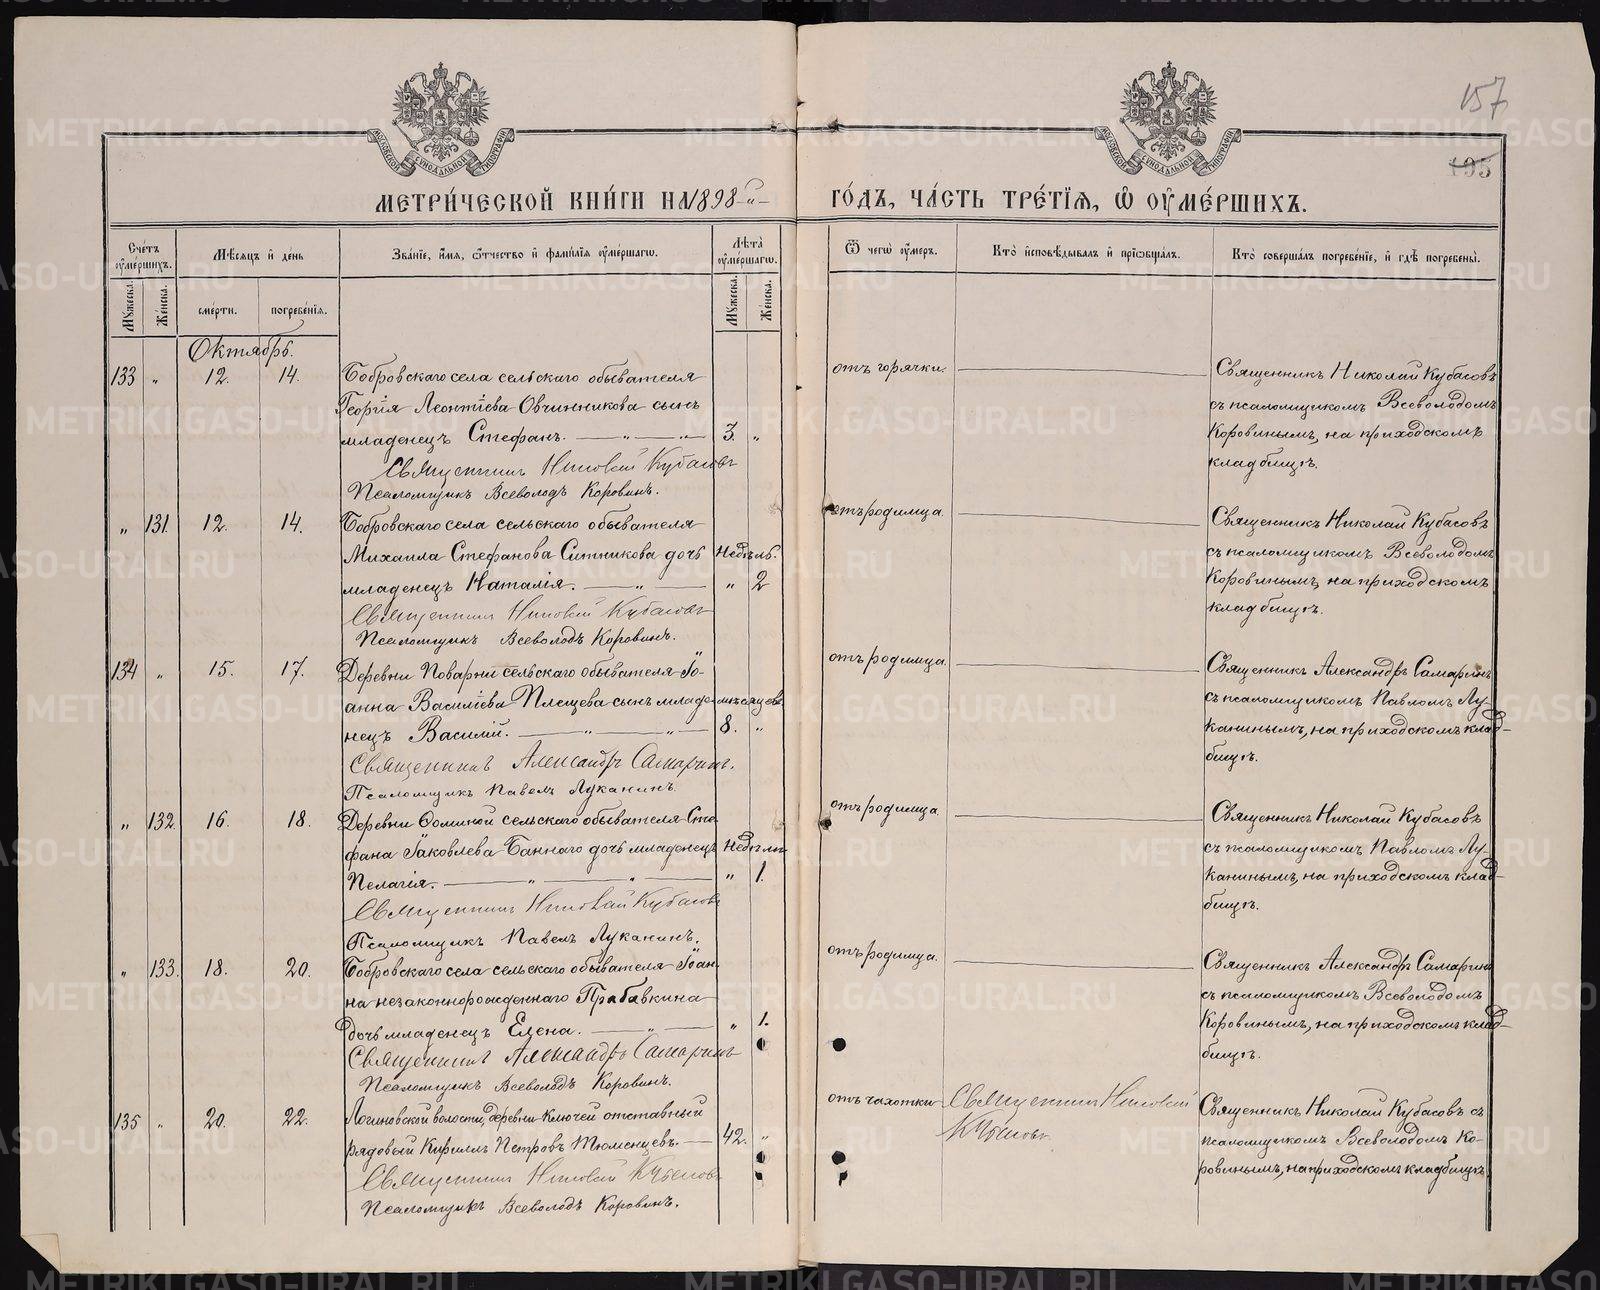 157
195
МЕТРИ́ЧЕСКОЙ КНИ́ГИ НА 1898-й ГО́ДЪ, ЧА́СТЬ ТРЕ́ТІѦ, Ѡ ОУМЕ́РШИХЪ.
Сче́тъ оумершихъ.
Мѣсяцъ и день
Зва́нїе, и́мѧ, ѻ҆́тчество и҆ фами́лїѧ оумершагѡ.
Лѣта оумершагѡ.
Ѿ чегѡ̀ оу҆́меръ.
Кто̀ и҆сповѣ́дывалъ и҆ прїѡбща́лъ.
Кто̀ соверша́лъ погребе́нїе, и҆ гдѣ̀ погребены̀.
Мужеска.
Женска.
сме́рти.
погребе́нїѧ.
Мужеска.
Женска.
Октябрь.
133 „ 12. 14. Бобровскаго села сельскаго обывателя
Георгія Леонтіева Овчинникова сынъ
младенецъ Стефанъ. — „ — „ — 3. „
Священникъ Николай Кубасовъ
Псаломщикъ Всеволодъ Коровинъ.
отъ горячки.
Священникъ Николай Кубасовъ
съ псаломщикомъ Всеволодомъ
Коровинымъ, на приходскомъ
кладбищѣ.
„ 131 12. 14. Бобровскаго села сельскаго обывателя
Михаила Стефанова Ситникова дочь Недѣль.
младенецъ Наталія. — „ — „ 2
Священникъ Николай Кубасовъ
Псаломщикъ Всеволодъ Коровинъ.
отъ родимца.
Священникъ Николай Кубасовъ
съ псаломщикомъ Всеволодомъ
Коровинымъ, на приходскомъ
кладбищѣ.
134 „ 15. 17. Деревни Поварни сельскаго обывателя Іо-
анна Василіева Плещева сынъ младе- мѣсяцевъ
нецъ Василій. — „ — „ — 8. „
Священникъ Александръ Самаринъ.
Псаломщикъ Павелъ Луканинъ.
отъ родимца.
Священникъ Александръ Самаринъ
съ псаломщикомъ Павломъ Лу-
канинымъ, на приходскомъ клад-
бищѣ.
„ 132. 16. 18. Деревни Ѳоминой сельскаго обывателя Сте
фана Іаковлева Баннаго дочь младенецъ Недѣли
Пелагія. — „ — „ — „ 1.
Священникъ Николай Кубасовъ
Псаломщикъ Павелъ Луканинъ.
отъ родимца.
Священникъ Николай Кубасовъ
съ псаломщикомъ Павломъ Лу-
канинымъ, на приходскомъ клад-
бищѣ.
„ 133. 18. 20. Бобровскаго села сельскаго обывателя Іоан-
на незаконнорожденнаго Прабавкина
дочь младенецъ Елена. — „ — „ 1.
Священникъ Александръ Самаринъ
Псаломщикъ Всеволодъ Коровинъ.
отъ родимца.
Священникъ Александръ Самаринъ
съ псаломщикомъ Всеволодомъ
Коровинымъ, на приходскомъ клад-
бищѣ.
135 „ 20. 22. Логиновской волости, деревни Ключей отставный
рядовый Кириллъ Петровъ Тюменцевъ. — 42. „
Священникъ Николай Кубасовъ
Псаломщикъ Всеволодъ Коровинъ.
отъ чахотки
Священникъ Николай
Кубасовъ.
Священникъ Николай Кубасовъ съ
псаломщикомъ Всеволодомъ Ко-
ровинымъ, на приходскомъ кладбищѣ.
METRIKI.GASO-URAL.RU